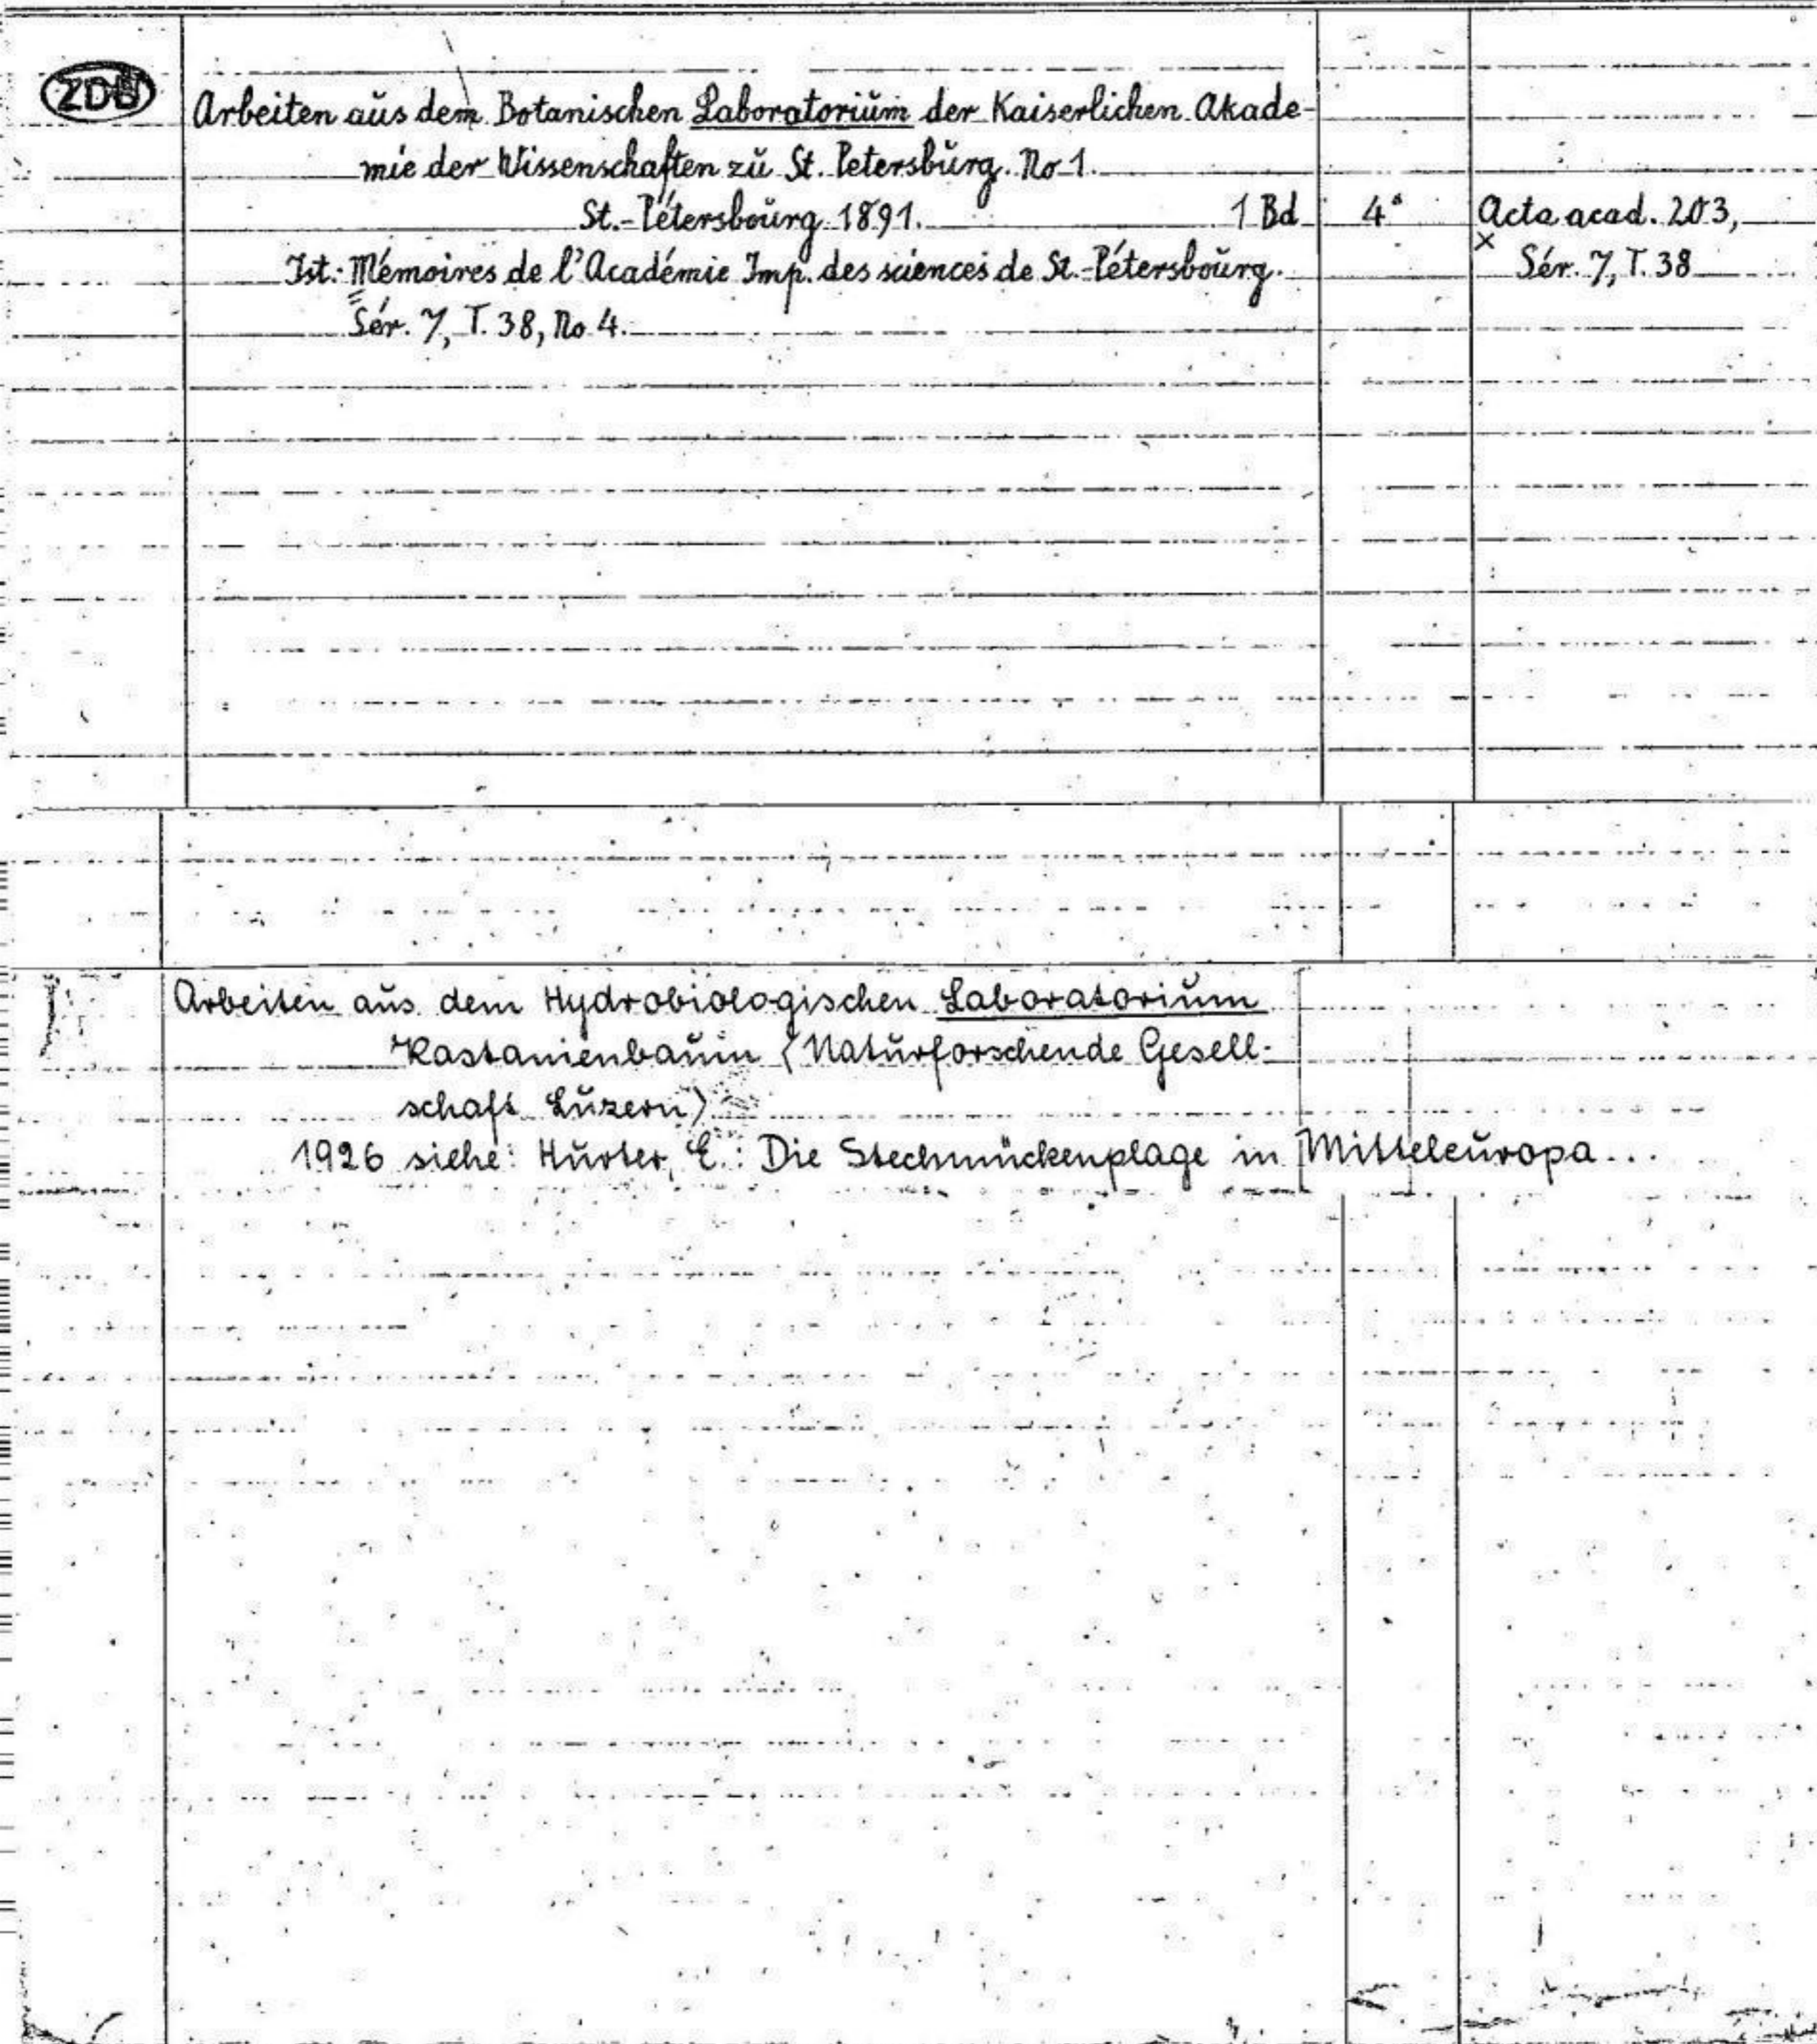 ZDB
Arbeiten aus dem Botanischen Laboratorium der Kaiserlichen Akade-
mie der Wissenschaften zu St. Petersburg. No 1.
St.-Pétersbourg 1891. 1 Bd 4° Acta acad. 203,
Ist: Mémoires de l'Académie Imp. des sciences de St.-Pétersbourg. × Sér. 7, T. 38
Sér. 7, T. 38, No 4.
Arbeiten aus dem Hydrobiologischen Laboratorium
Kastanienbaum (Naturforschende Gesell-
schaft Luzern)
1926 siehe: Hurter, E.: Die Stechmückenplage in Mitteleuropa...